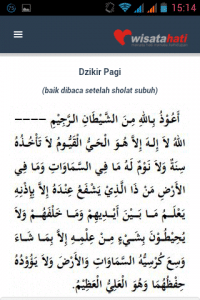 15:14
wisatahati
Dzikir Pagi
(baik dibaca setelah sholat subuh)
أَعُوْذُ بِاللهِ مِنَ الشَّيْطَانِ الرَّجِيْمِ ----
اللهُ لاَ إِلـهَ إِلاَّ هُوَ الْحَيُّ الْقَيُّومُ لاَ تَأْخُذُهُ
سِنَةٌ وَلاَ نَوْمٌ لَهُ مَا فِي السَّمَاوَاتِ وَمَا فِي
الأَرْضِ مَنْ ذَا الَّذِيْ يَشْفَعُ عِنْدَهُ إِلاَّ بِإِذْنِهِ
يَعْلَمُ مَا بَيْنَ أَيْدِيهِمْ وَمَا خَلْفَهُمْ وَلاَ
يُحِيْطُوْنَ بِشَيْءٍ مِنْ عِلْمِهِ إِلاَّ بِمَا شَاءَ
وَسِعَ كُرْسِيُّهُ السَّمَاوَاتِ وَالأَرْضَ وَلاَ يَؤُوْدُهُ
حِفْظُهُمَا وَهُوَ الْعَلِيُّ الْعَظِيْمُ.